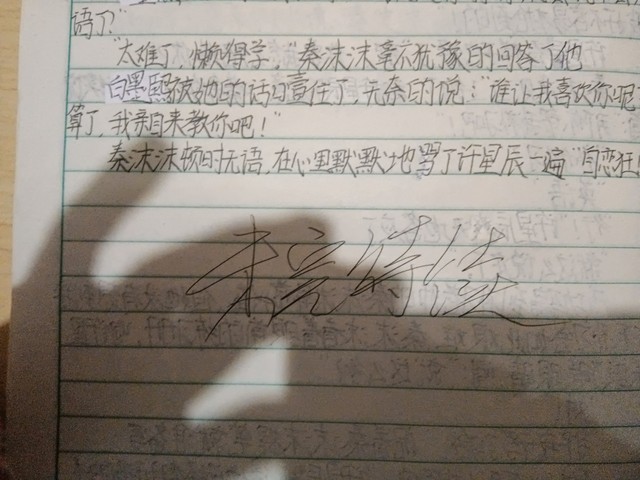 语了"
"太难了,懒得学,"秦沫沫毫不犹豫的回答了他
白墨熙被她的话口壹住了,无奈的说:"谁让我喜欢你呢?
算了,我亲自来教你吧!"
秦沫沫顿时无语,在心里默默地骂了许星辰一遍"自恋狂!
未完待续